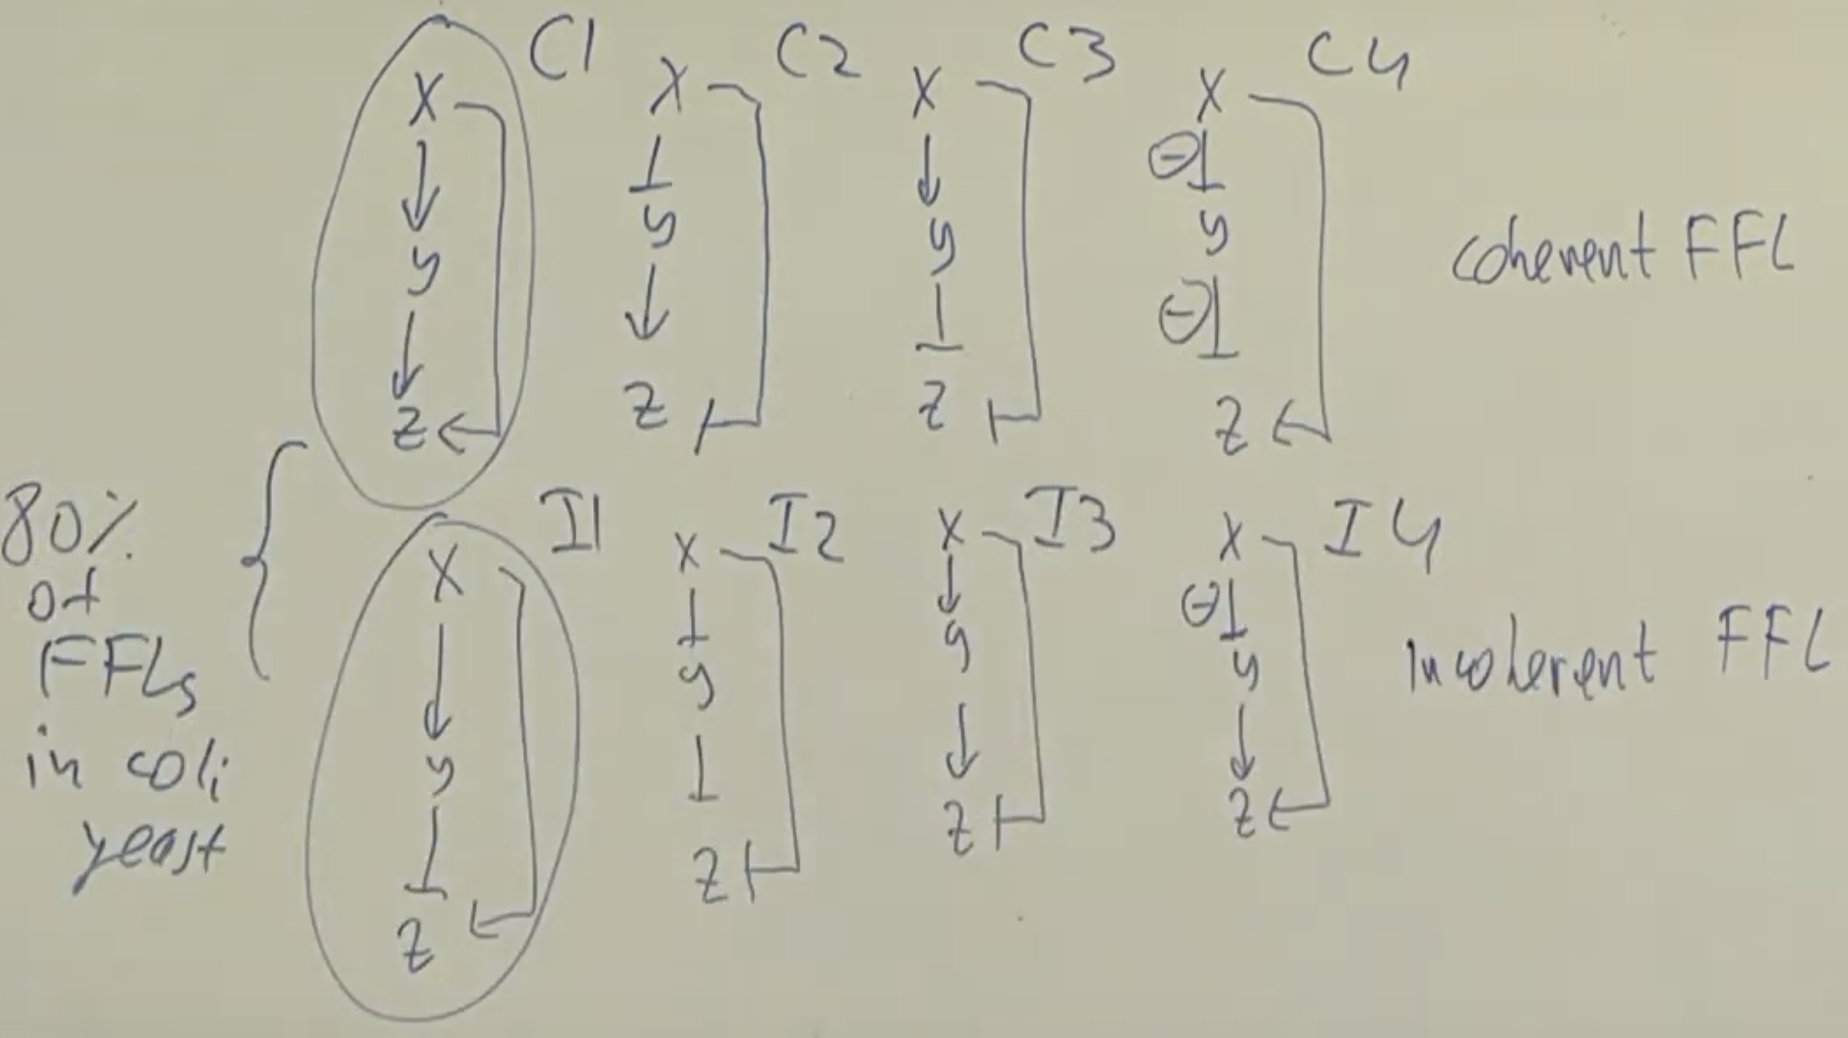 C1 C2 C3 C4
X X X X
⊖
y y y y
⊖
Z Z Z Z
coherent FFL
80%
of
FFLs
in coli
yeast
I1 I2 I3 I4
X X X X
⊖
y y y y
Z Z Z Z
Incoherent FFL